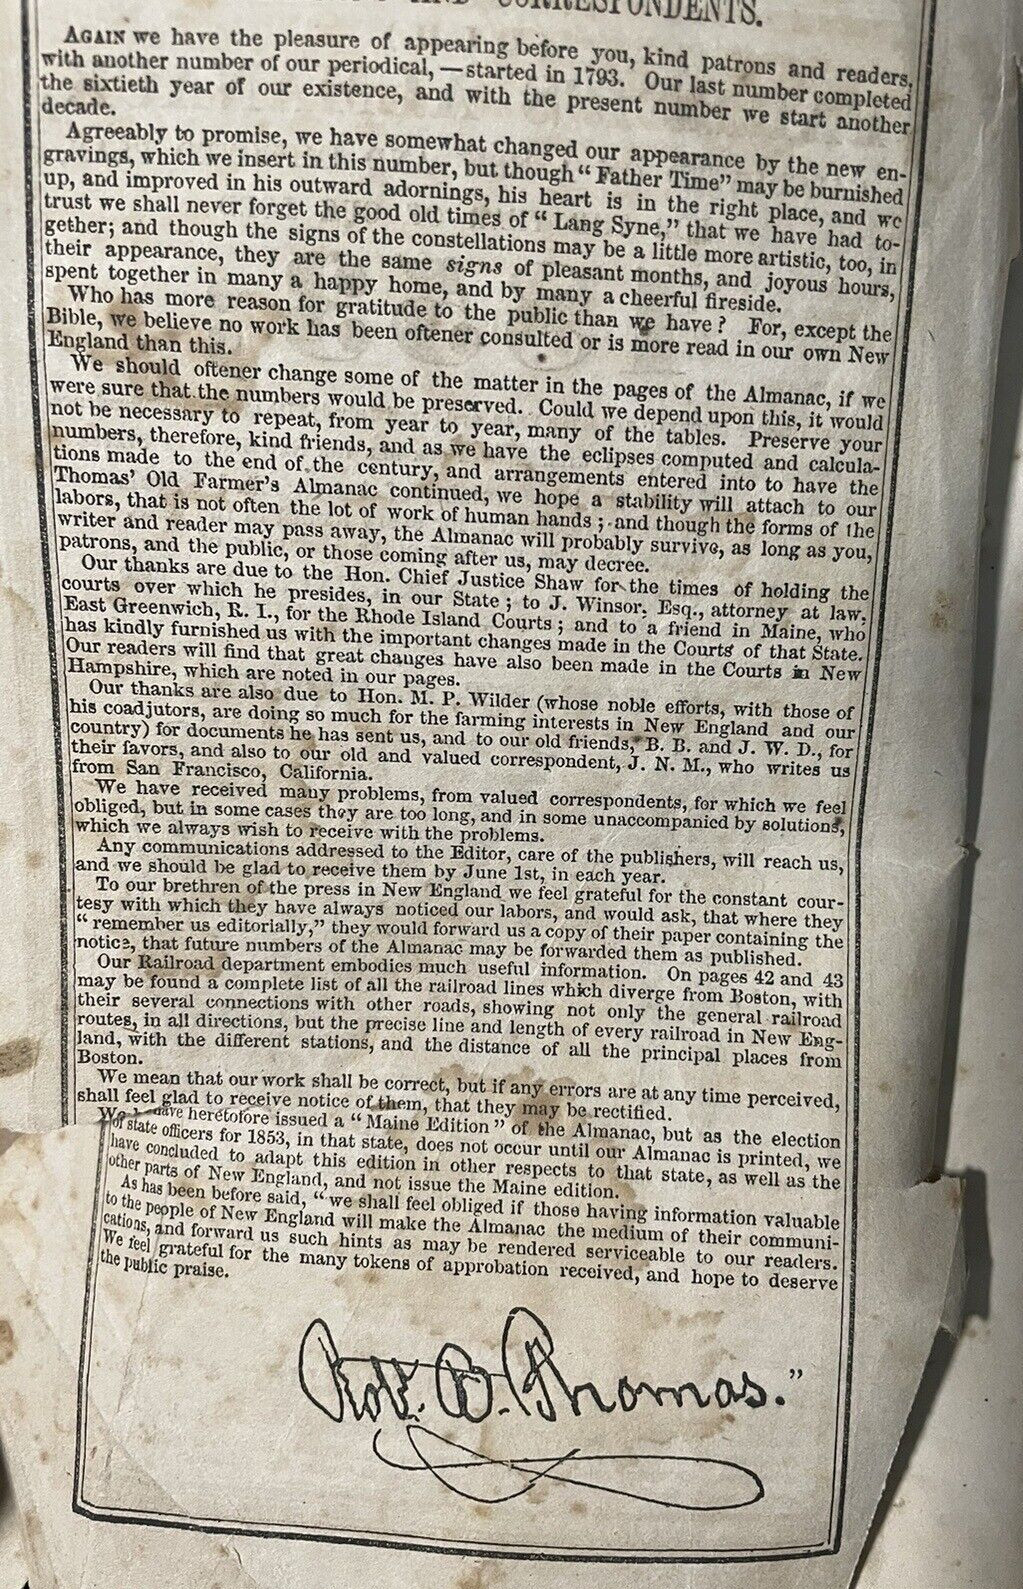 AND CORRESPONDENTS.
AGAIN we have the pleasure of appearing before you, kind patrons and readers,
with another number of our periodical, —started in 1793. Our last number completed
the sixtieth year of our existence, and with the present number we start another
decade.
Agreeably to promise, we have somewhat changed our appearance by the new en-
gravings, which we insert in this number, but though “ Father Time” may be burnished
up, and improved in his outward adornings, his heart is in the right place, and we
trust we shall never forget the good old times of “ Lang Syne,” that we have had to-
gether; and though the signs of the constellations may be a little more artistic, too, in
their appearance, they are the same signs of pleasant months, and joyous hours,
spent together in many a happy home, and by many a cheerful fireside.
Who has more reason for gratitude to the public than we have? For, except the
Bible, we believe no work has been oftener consulted or is more read in our own New
England than this.
We should oftener change some of the matter in the pages of the Almanac, if we
were sure that the numbers would be preserved. Could we depend upon this, it would
not be necessary to repeat, from year to year, many of the tables. Preserve your
numbers, therefore, kind friends, and as we have the eclipses computed and calcula-
tions made to the end of the century, and arrangements entered into to have the
Thomas’ Old Farmer’s Almanac continued, we hope a stability will attach to our
labors, that is not often the lot of work of human hands ; and though the forms of the
writer and reader may pass away, the Almanac will probably survive, as long as you,
patrons, and the public, or those coming after us, may decree.
Our thanks are due to the Hon. Chief Justice Shaw for the times of holding the
courts over which he presides, in our State ; to J. Winsor, Esq., attorney at law,
East Greenwich, R. I., for the Rhode Island Courts ; and to a friend in Maine, who
has kindly furnished us with the important changes made in the Courts of that State.
Our readers will find that great changes have also been made in the Courts in New
Hampshire, which are noted in our pages.
Our thanks are also due to Hon. M. P. Wilder (whose noble efforts, with those of
his coadjutors, are doing so much for the farming interests in New England and our
country) for documents he has sent us, and to our old friends, B. B. and J. W. D., for
their favors, and also to our old and valued correspondent, J. N. M., who writes us
from San Francisco, California.
We have received many problems, from valued correspondents, for which we feel
obliged, but in some cases they are too long, and in some unaccompanied by solutions,
which we always wish to receive with the problems.
Any communications addressed to the Editor, care of the publishers, will reach us,
and we should be glad to receive them by June 1st, in each year.
To our brethren of the press in New England we feel grateful for the constant cour-
tesy with which they have always noticed our labors, and would ask, that where they
“ remember us editorially,” they would forward us a copy of their paper containing the
notice, that future numbers of the Almanac may be forwarded them as published.
Our Railroad department embodies much useful information. On pages 42 and 43
may be found a complete list of all the railroad lines which diverge from Boston, with
their several connections with other roads, showing not only the general railroad
routes, in all directions, but the precise line and length of every railroad in New Eng-
land, with the different stations, and the distance of all the principal places from
Boston.
We mean that our work shall be correct, but if any errors are at any time perceived,
shall feel glad to receive notice of them, that they may be rectified.
We have heretofore issued a “ Maine Edition ” of the Almanac, but as the election
of state officers for 1853, in that state, does not occur until our Almanac is printed, we
have concluded to adapt this edition in other respects to that state, as well as the
other parts of New England, and not issue the Maine edition.
As has been before said, “ we shall feel obliged if those having information valuable
to the people of New England will make the Almanac the medium of their communi-
cations, and forward us such hints as may be rendered serviceable to our readers.
We feel grateful for the many tokens of approbation received, and hope to deserve
the public praise.
Robt. B. Thomas.”